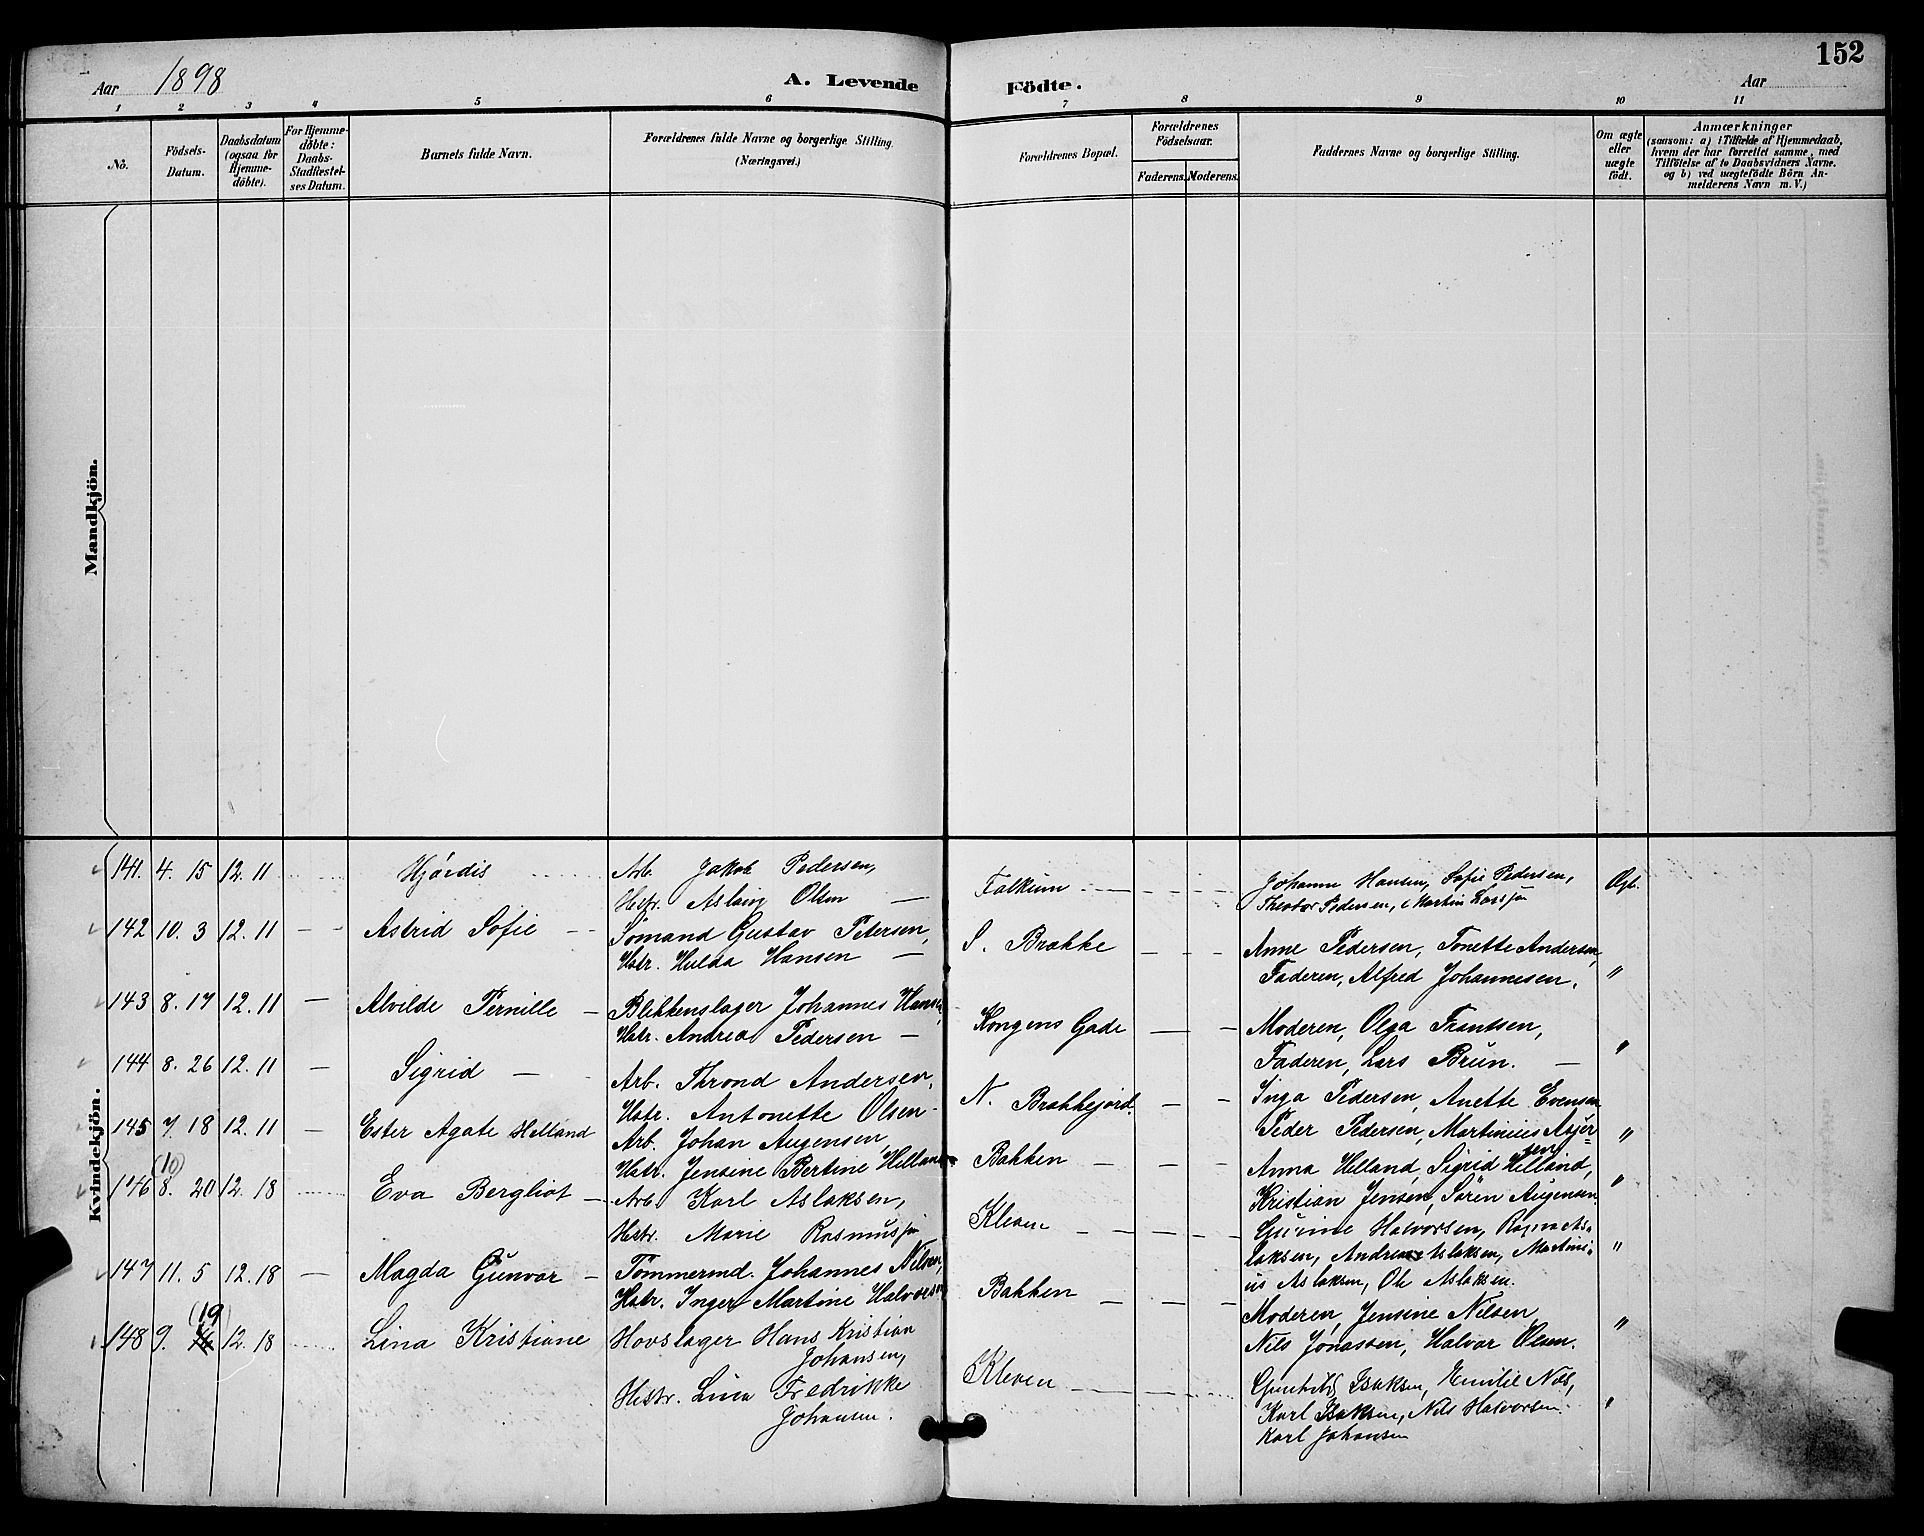 152
Aar 1898
A. Levende
Födte.
Aar
1 2 3 4 5 6 7 8 9 10 11
No.
Födsels-
Datum.
Daabsdatum
(ogsaa for
Hjemme-
döbte).
For Hjemme-
döbte:
Daabs-
Stadfæstel-
ses Datum.
Barnets fulde Navn.
Forældrenes fulde Navne og borgerlige Stilling.
(Næringsvei.)
Forældrenes Bopæl.
Forældrenes
Födselsaar.
Faderens. Moderens.
Faddernes Navne og borgerlige Stilling.
Om ægte
eller
uægte
födt.
Anmærkninger
(saasom: a) i Tilfælde af Hjemmedaab,
hvem der har forrettet samme, med
Tilföielse af to Daabsvidners Navne.
og b) ved uægtefödte Börn An-
melderens Navn m. V.)
Mandkjön.
Kvindekjön.
141. 4. 15 12. 11 Hjördis
Arb. Jakob Pedersen,
Hstr. Aslaug Olsen
Falkum
Johanne Hansen, Sofie Pedersen,
Theodor Pedersen, Martin
Ægt.
142 10. 3 12. 11 Astrid Sofie
Sömand Gustav Petersen,
Hstr. Hulda Hansen
S. Brække
Anne Pedersen, Tonette Andersen,
Faderen, Alfred Johannesen.
"
143 8. 17 12. 11 Alvilde Pernille
Blikkenslager Johannes Hansen,
Hstr. Andrea Pedersen
Kongens Gade
Moderen, Olga Frantsen,
Faderen, Lars Brun.
"
144 8. 26 12. 11 Sigrid
Arb. Thrond Andersen,
Hstr. Antonette Olsen
N. Brækkejord
Inga Pedersen, Anette Evensen
Peder Pedersen, Martinius Asjer=
sen
"
145 7. 18 12. 11 Ester Agate Helland
Arb. Johan Augensen,
Hstr. Jensine Bertine Helland
Bakken
Anna Helland, Sigrid Helland,
Kristian Jensen, Sören Augensen
"
(10)
146 8. 20 12. 18 Eva Bergliot
Arb. Karl Aslaksen,
Hstr. Marie Rasmussen
Kleven
Halvorsen, Ragna As-
laksen, Andreas Aslaksen, Martini-
us Aslaksen, Ole Aslaksen.
"
147 11. 5 12. 18 Magda Gunvor
Tömmermd. Johannes Nilsen,
Hstr. Inger Martine Halvorsen
Bakken
Moderen, Jensine Nilsen
Nils Jonassen, Halvor Olsen.
"
(19)
148 9. 12. 18 Lina Kristiane
Hovslager Hans Kristian
Johansen,
Hstr. Lina Fredrikke
Johansen.
Kleven
Gunhild Isaksen, Emilie Næs,
Karl Isaksen, Nils Halvorsen.
Karl Johansen
"